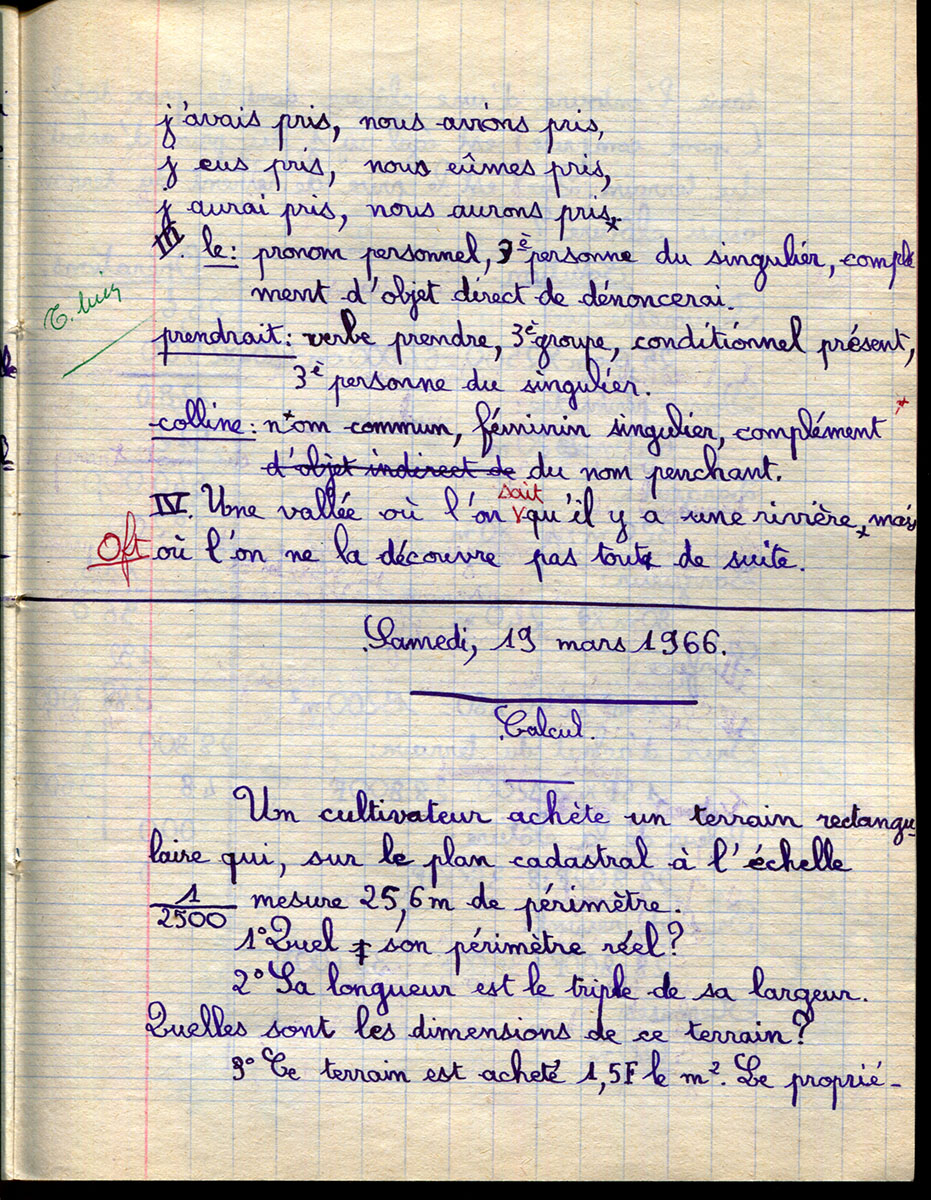 j'avais pris, nous avions pris,
j eus pris, nous eûmes pris,
j aurai pris, nous aurons pris.
III. le: pronom personnel, 3è personne du singulier, complé
ment d'objet direct de dénoncerai.
T. bien
prendrait: verbe prendre, 3è groupe, conditionnel présent,
3è personne du singulier.
colline: nom commun, féminin singulier, complément
d'objet indirect de du nom penchant.
sait
IV. Une vallée où l'on qu'il y a une rivière, mais
Oft où l'on ne la découvre pas tout de suite.
Samedi, 19 mars 1966.
Calcul.
Un cultivateur achète un terrain rectangu-
laire qui, sur le plan cadastral à l'échelle
1/2500 mesure 25,6m de périmètre.
1° Quel son périmètre réel?
2° Sa longueur est le triple de sa largeur.
Quelles sont les dimensions de ce terrain?
3° Ce terrain est acheté 1,5F le m². Le proprié-